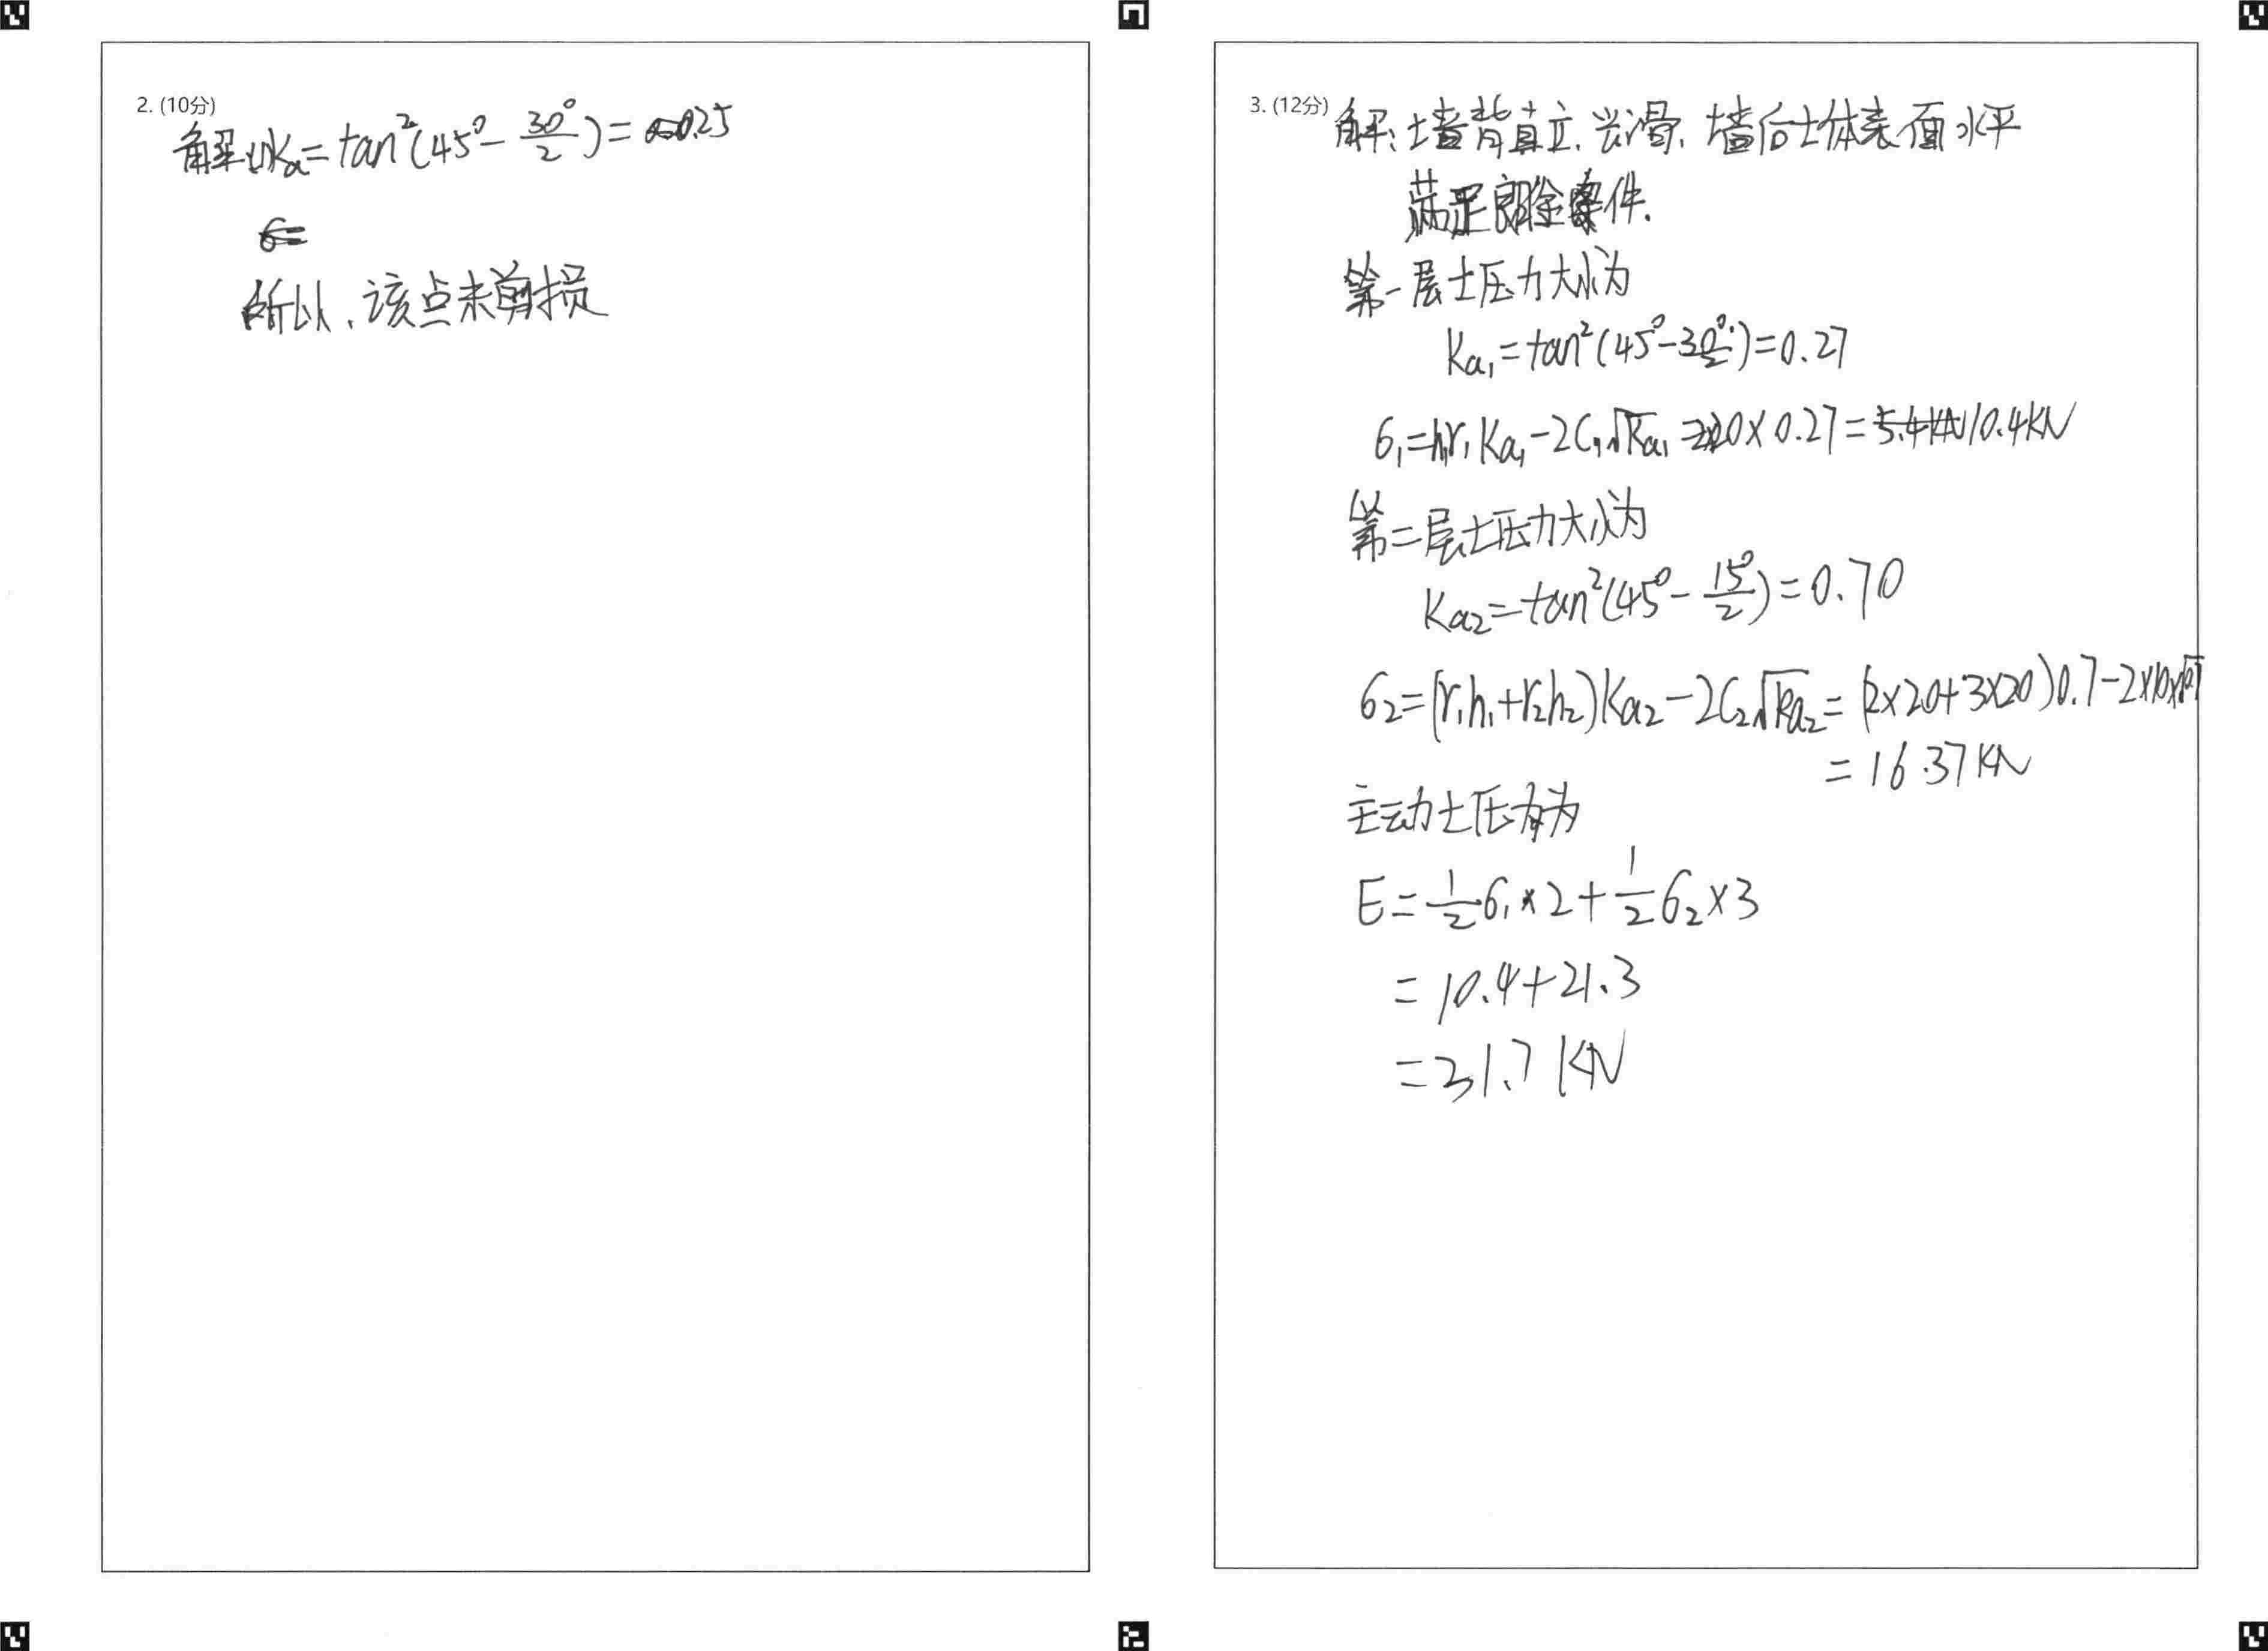 2. (10分)
解:(1)Ka=tan²(45°-30°/2)=0.25
σ=
所以、该点未剪损
3. (12分)
解:墙背直立、光滑、墙后土体表面水平
满足郎金条件.
第一层土压力大小为
Ka₁=tan²(45°-30°/2)=0.27
σ₁=h₁r₁Ka₁-2C₁√Ka₁=2×20×0.27=5.4KN10.4KN
第二层土压力大小为
Ka2=tan²(45°-15°/2)=0.70
σ₂=(r₁h₁+r₂h₂)Ka₂-2C₂√Ka₂=(2×20+3×20)0.7-2×10×√0.7
=16.37KN
主动土压力为
E=1/2σ₁×2+1/2σ₂×3
=10.4+21.3
=31.7KN